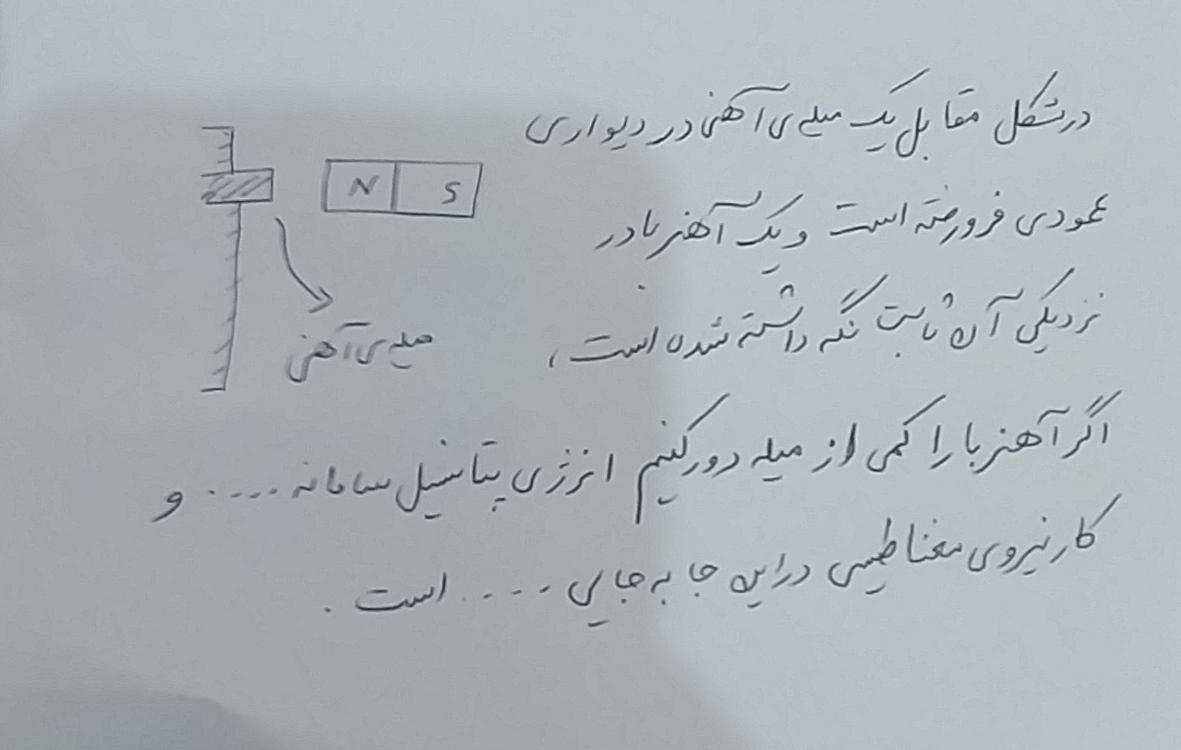 در شکل مقابل یک میله ی آهنی در دیواری
عمودی فرو رفته است و یک آهنربا در
نزدیکی آن ثابت نگه داشته شده است،
اگر آهنربا را کمی از میله دور کنیم انرژی پتانسیل سامانه .... و
کار نیروی مغناطیسی در این جا به جایی .... است .
N S
میله ی آهنی